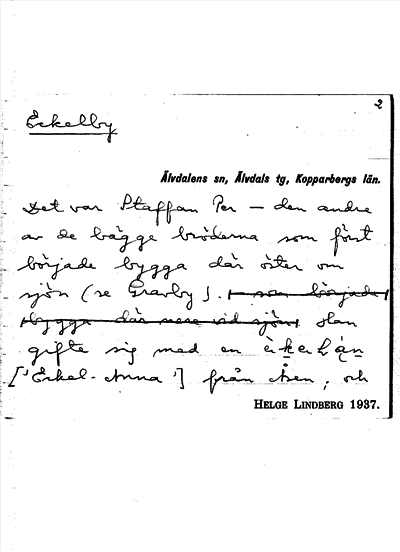 2
Eckelby
Älvdalens sn, Älvdals tg, Kopparbergs län.
Det var Staffan Per – den andre
av de bägge bröderna som först
började bygga där öster om
sjön (se Gravby). som började
bygga där nere vid sjön Han
gifte sig med en
['Eckel-Anna'] från Åsen, och
HELGE LINDBERG 1937.